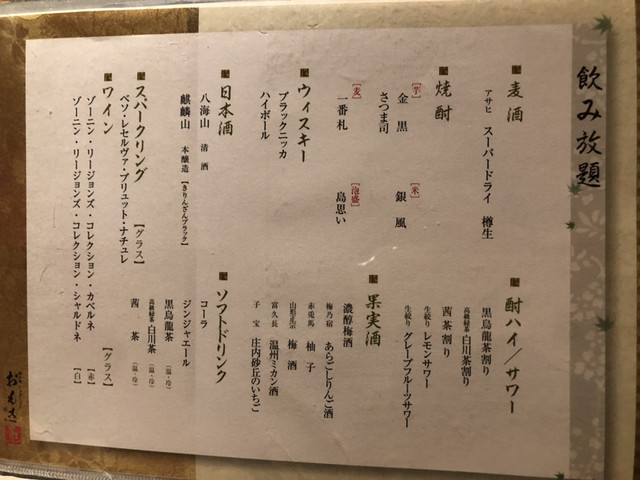 飲み放題
麦酒
アサヒ スーパードライ 樽生
焼酎
【芋】
金黒
さつま司
【米】
銀風
【麦】
一番札
【泡盛】
島思い
ウィスキー
ブラックニッカ
ハイボール
日本酒
八海山 清酒
麒麟山 本醸造【きりんざんブラック】
スパークリング
ベソ・レセルヴァ・ブリュット・ナチュレ 【グラス】
ワイン 【グラス】
ゾーニン・リージョンズ・コレクション・カベルネ 【赤】
ゾーニン・リージョンズ・コレクション・シャルドネ 【白】
酎ハイ／サワー
黒烏龍茶割り
高級緑茶 白川茶割り
茜茶割り
生絞り レモンサワー
生絞り グレープフルーツサワー
果実酒
濃醇梅酒
梅乃宿 あらごしりんご酒
赤兎馬 柚子
山形正宗 梅酒
富久長 温州ミカン酒
子宝 庄内砂丘のいちご
ソフトドリンク
コーラ
ジンジャエール
黒烏龍茶 （温・冷）
高級緑茶 白川茶 （温・冷）
茜茶 （温・冷）